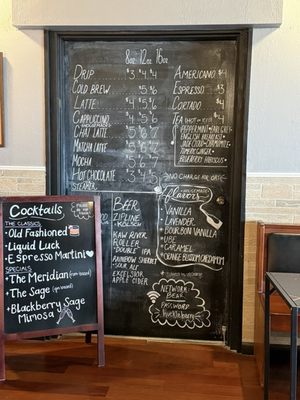 8oz 12oz 16oz
Drip $3 $4 $4
Cold Brew $5 $6
Latte $4 $5 $6
Cappuccino $4 $5 $6
Chai Latte $5 $6 $7
Matcha Latte $5 $6 $7
Mocha $5 $6 $7
Hot Chocolate $3 $4 $5
Steamer
Americano $4
Espresso $3
Cortado $4
Tea
Peppermint • Earl Grey
English Breakfast
Jade Cloud
Turmeric Ginger
Blueberry Hibiscus
Beer
Zipline
Kölsch
Kaw River
Roller
Double IPA
Rainbow Sherbet
Sour Ale
Excelsior
Apple Cider
No Charge
Homemade
Flavors
Vanilla
Lavender
Bourbon Vanilla
Ube
Caramel
Orange Blossom Cardamom
Network
Bear
Password
huckleberry
Cocktails
The Classics
Old Fashioned
Liquid Luck
Espresso Martini
Specials
The Meridian (gin based)
The Sage (gin based)
Blackberry Sage
Mimosa